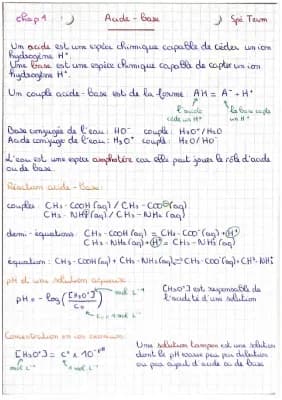 Chap 1 Acide - Base Spé Term
Un acide est une espèce chimique capable de céder un ion
hydrogène H⁺.
Une base est une espèce chimique capable de capter un ion
hydrogène H⁺.
Un couple acide - base est de la forme AH = A⁻ + H⁺
l'acide la base capte
cède un H⁺ un H⁺
Base conjuguée de l'eau : HO⁻ couple : H₂O / HO⁻
Acide conjugué de l'eau : H₃O⁺ couple :
L'eau est une espèce amphotère car elle peut jouer le rôle d'acide
ou de base.
Réaction acide - base :
couples : CH₃ - COOH (aq) / CH₃ - COO⁻ (aq)
CH₃ - NH₃⁺ (aq) / CH₃ - NH₂ (aq)
demi - équations : CH₃ - COOH (aq) = CH₃ - COO⁻ (aq) + H⁺
CH₃ - NH₂ (aq) + H⁺ = CH₃ - NH₃⁺ (aq)
équation : CH₃ - COOH (aq) + CH₃ - NH₂ (aq) ⇌ CH₃ - COO⁻ (aq) + CH₃ - NH₃⁺
pH d'une solution aqueuse :
pH = - log ( [H₃O⁺] / C₀ ) mol. L⁻¹
C₀ = 1 mol. L⁻¹
[H₃O⁺] est responsable de
l'acidité d'une solution
Concentration en ion oxonium :
[H₃O⁺] = C° × 10⁻ᵖᴴ
mol. L⁻¹ mol. L⁻¹
Une solution tampon est une solution
dont le pH varie peu par dilution
ou par ajout d'acide ou de base